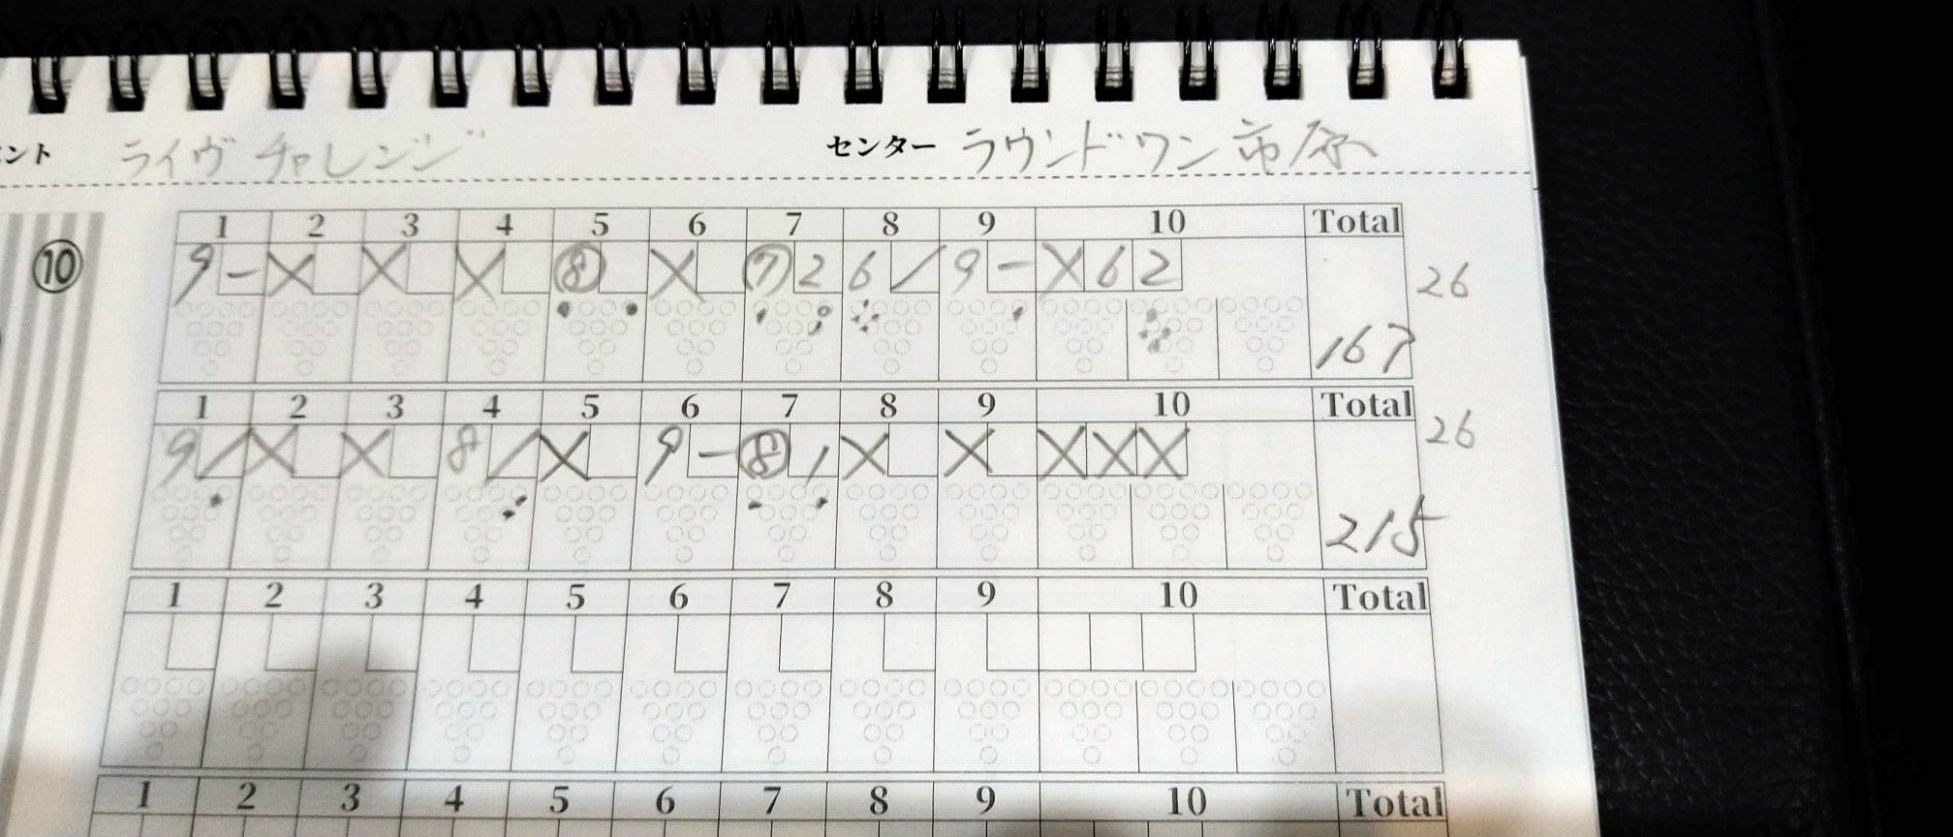 ント ライヴチャレンジ センター ラウンドワン市原
⑩
1 2 3 4 5 6 7 8 9 10 Total
9 - X X X ⑧ X ⑦ 2 6 / 9 - X 6 2 26
167
1 2 3 4 5 6 7 8 9 10 Total
9 / X X 8 / X 9 - ⑧ 1 X X X X X 26
215
1 2 3 4 5 6 7 8 9 10 Total
1 2 3 4 5 6 7 8 9 10 Total